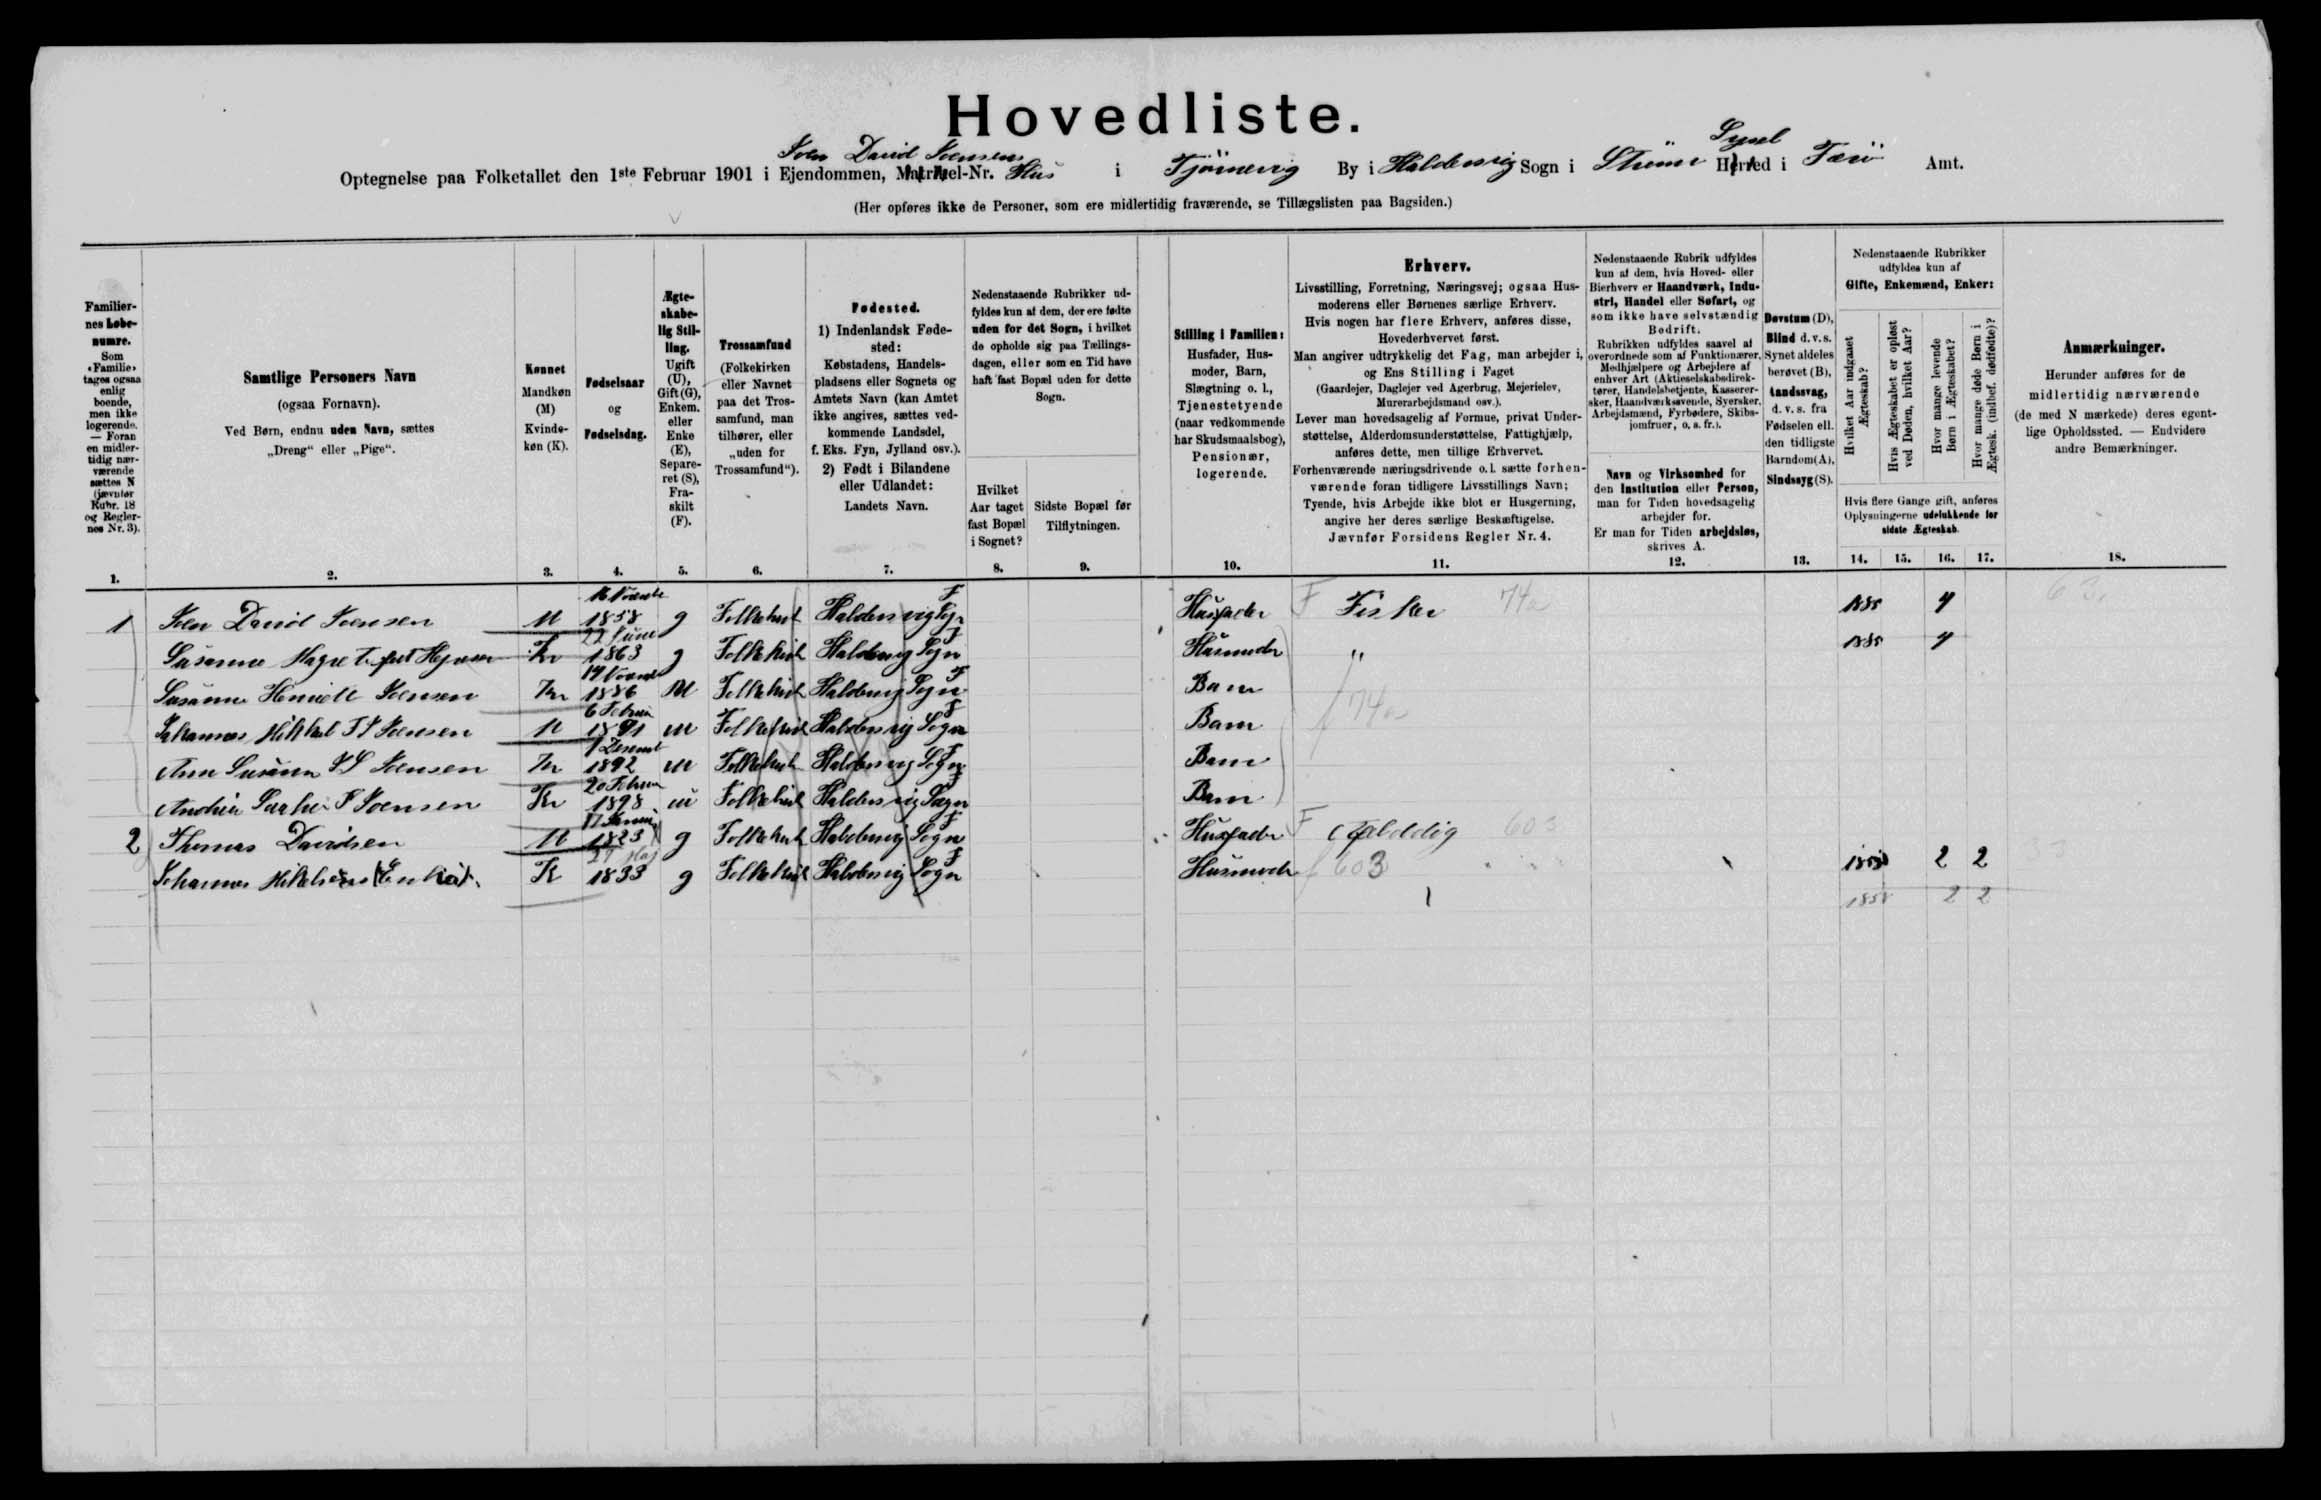 Hovedliste.
Joen David Joensens
Sysel
Optegnelse paa Folketallet den 1ste Februar 1901 i Ejendommen, Matrikel-Nr. Hus i Tjörnevig By i Haldersvig Sogn i Strömø Herred i Færö Amt.
(Her opføres ikke de Personer, som ere midlertidig fraværende, se Tillægslisten paa Bagsiden.)
Familiernes Løbenumre. Som «Familie» tages ogsaa enlig boende, men ikke logerende. — Foran en midlertidig nærværende sættes N (jævnfør Rubr. 18 og Reglernes Nr. 3).
Samtlige Personers Navn
(ogsaa Fornavn).
Ved Børn, endnu uden Navn, sættes
„Dreng“ eller „Pige“.
Kønnet
Mandkøn (M)
Kvindekøn (K).
Fødselsaar
og
Fødselsdag.
Ægteskabelig Stilling.
Ugift (U), Gift (G), Enkem. eller Enke (E), Separeret (S), Fraskilt (F).
Trossamfund
(Folkekirken eller Navnet paa det Trossamfund, man tilhører, eller „uden for Trossamfund“).
Fødested.
1) Indenlandsk Fødested:
Købstadens, Handelspladsens eller Sognets og Amtets Navn (kan Amtet ikke angives, sættes vedkommende Landsdel, f. Eks. Fyn, Jylland osv.).
2) Født i Bilandene eller Udlandet:
Landets Navn.
Nedenstaaende Rubrikker udfyldes kun af dem, der ere fødte uden for det Sogn, i hvilket de opholde sig paa Tællingsdagen, eller som en Tid have haft fast Bopæl uden for dette Sogn.
Hvilket Aar taget fast Bopæl i Sognet?
Sidste Bopæl før Tilflytningen.
Stilling i Familien:
Husfader, Husmoder, Barn, Slægtning o. l., Tjenestetyende (naar vedkommende har Skudsmaalsbog), Pensionær, logerende.
Erhverv.
Livsstilling, Forretning, Næringsvej; ogsaa Husmoderens eller Børnenes særlige Erhverv.
Hvis nogen har flere Erhverv, anføres disse, Hovederhvervet først.
Man angiver udtrykkelig det Fag, man arbejder i, og Ens Stilling i Faget
(Gaardejer, Daglejer ved Agerbrug, Mejerielev, Murerarbejdsmand osv.).
Lever man hovedsagelig af Formue, privat Understøttelse, Alderdomsunderstøttelse, Fattighjælp, anføres dette, men tillige Erhvervet.
Forhenværende næringsdrivende o. l. sætte forhenværende foran tidligere Livsstillings Navn;
Tyende, hvis Arbejde ikke blot er Husgerning, angive her deres særlige Beskæftigelse.
Jævnfør Forsidens Regler Nr. 4.
Nedenstaaende Rubrik udfyldes kun af dem, hvis Hoved- eller Bierhverv er Haandværk, Industri, Handel eller Søfart, og som ikke have selvstændig Bedrift.
Rubrikken udfyldes saavel af overordnede som af Funktionærer, Medhjælpere og Arbejdere af enhver Art (Aktieselskabsdirektører, Handelsbetjente, Kassererersker, Haandværkssvende, Syersker, Arbejdsmænd, Fyrbødere, Skibsjomfruer, o. a. fr.).
Navn og Virksomhed for den Institution eller Person, man for Tiden hovedsagelig arbejder for.
Er man for Tiden arbejdsløs, skrives A.
Døvstum (D), Blind d. v. s. Synet aldeles berøvet (B), Aandssvag, d. v. s. fra Fødselen ell. den tidligste Barndom (A), Sindssyg (S).
Nedenstaaende Rubrikker udfyldes kun af
Gifte, Enkemænd, Enker:
Hvilket Aar indgaaet Ægteskab?
Hvis Ægteskabet er opløst ved Døden, hvilket Aar?
Hvor mange levende Børn i Ægteskabet?
Hvor mange døde Børn i Ægtesk. (indbef. dødfødte)?
Hvis flere Gange gift, anføres Oplysningerne udelukkende for sidste Ægteskab.
Anmærkninger.
Herunder anføres for de midlertidig nærværende (de med N mærkede) deres egentlige Opholdssted. — Endvidere andre Bemærkninger.
1. 2. 3. 4. 5. 6. 7. 8. 9. 10. 11. 12. 13. 14. 15. 16. 17. 18.
1 Joen David Joensen M 1858 g Folkekirk Haldersvig Sogn Husfader F Fisker 74a 1885 4
Susanne 22 Juni Kv 1863 g Folkekirk Haldersvig Sogn Husmoder " 1885 4
Susanne Joensen Kv 1886 U Folkekirk Haldersvig Sogn Barn 74a
Johannes Mikkel Joensen M 1891 U Folkekirk Haldersvig Sogn Barn
Anne Susanne Joensen Kv 1892 U Folkekirk Haldersvig Sogn Barn
Joensen Kv 20 1898 U Folkekirk Haldersvig Sogn Barn
2 Thomas Davidsen M 17 1823 g Folkekirk Haldersvig Sogn Husfader F 603
K 27 Maj 1833 g Folkekirk Haldersvig Sogn Husmoder 603 2 2
2 2